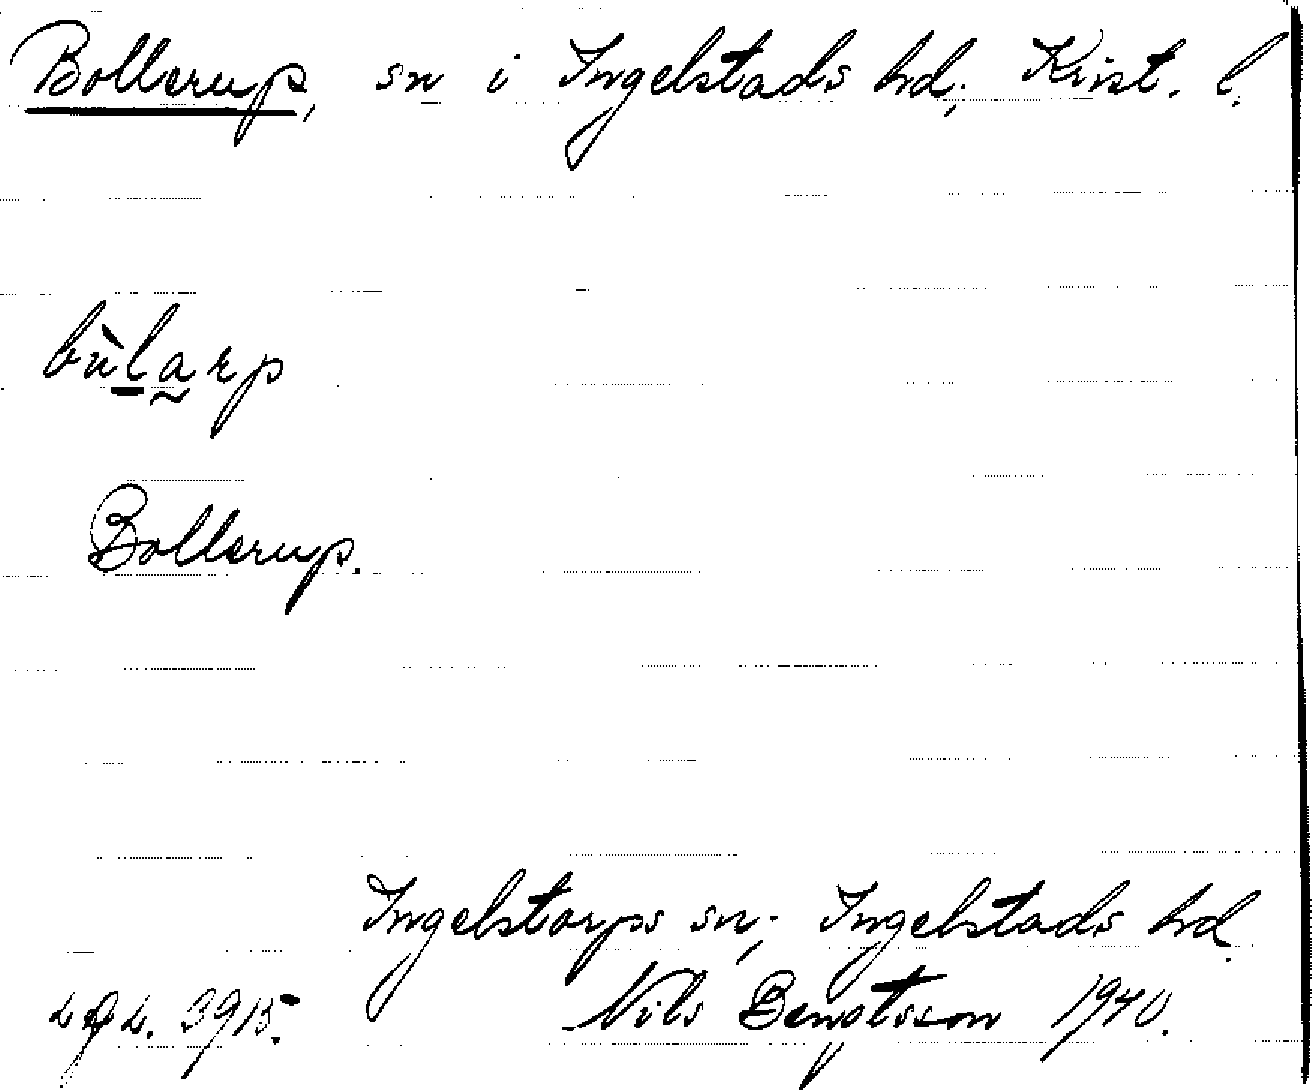 Bollerup, sn i Ingelstads hd; Krist. l.
bùlarp
Bollerup.
Ingelstorps sn; Ingelstads hd.
Nils Bengtsson 1940.
3915.